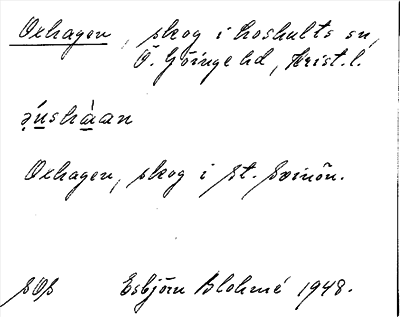 Oxhagen, skog i Loshults sn,
Ö. Göinge hd, Krist. l.
Oxhagen, skog i St. Svinön.
Esbjörn Blohmé 1948.